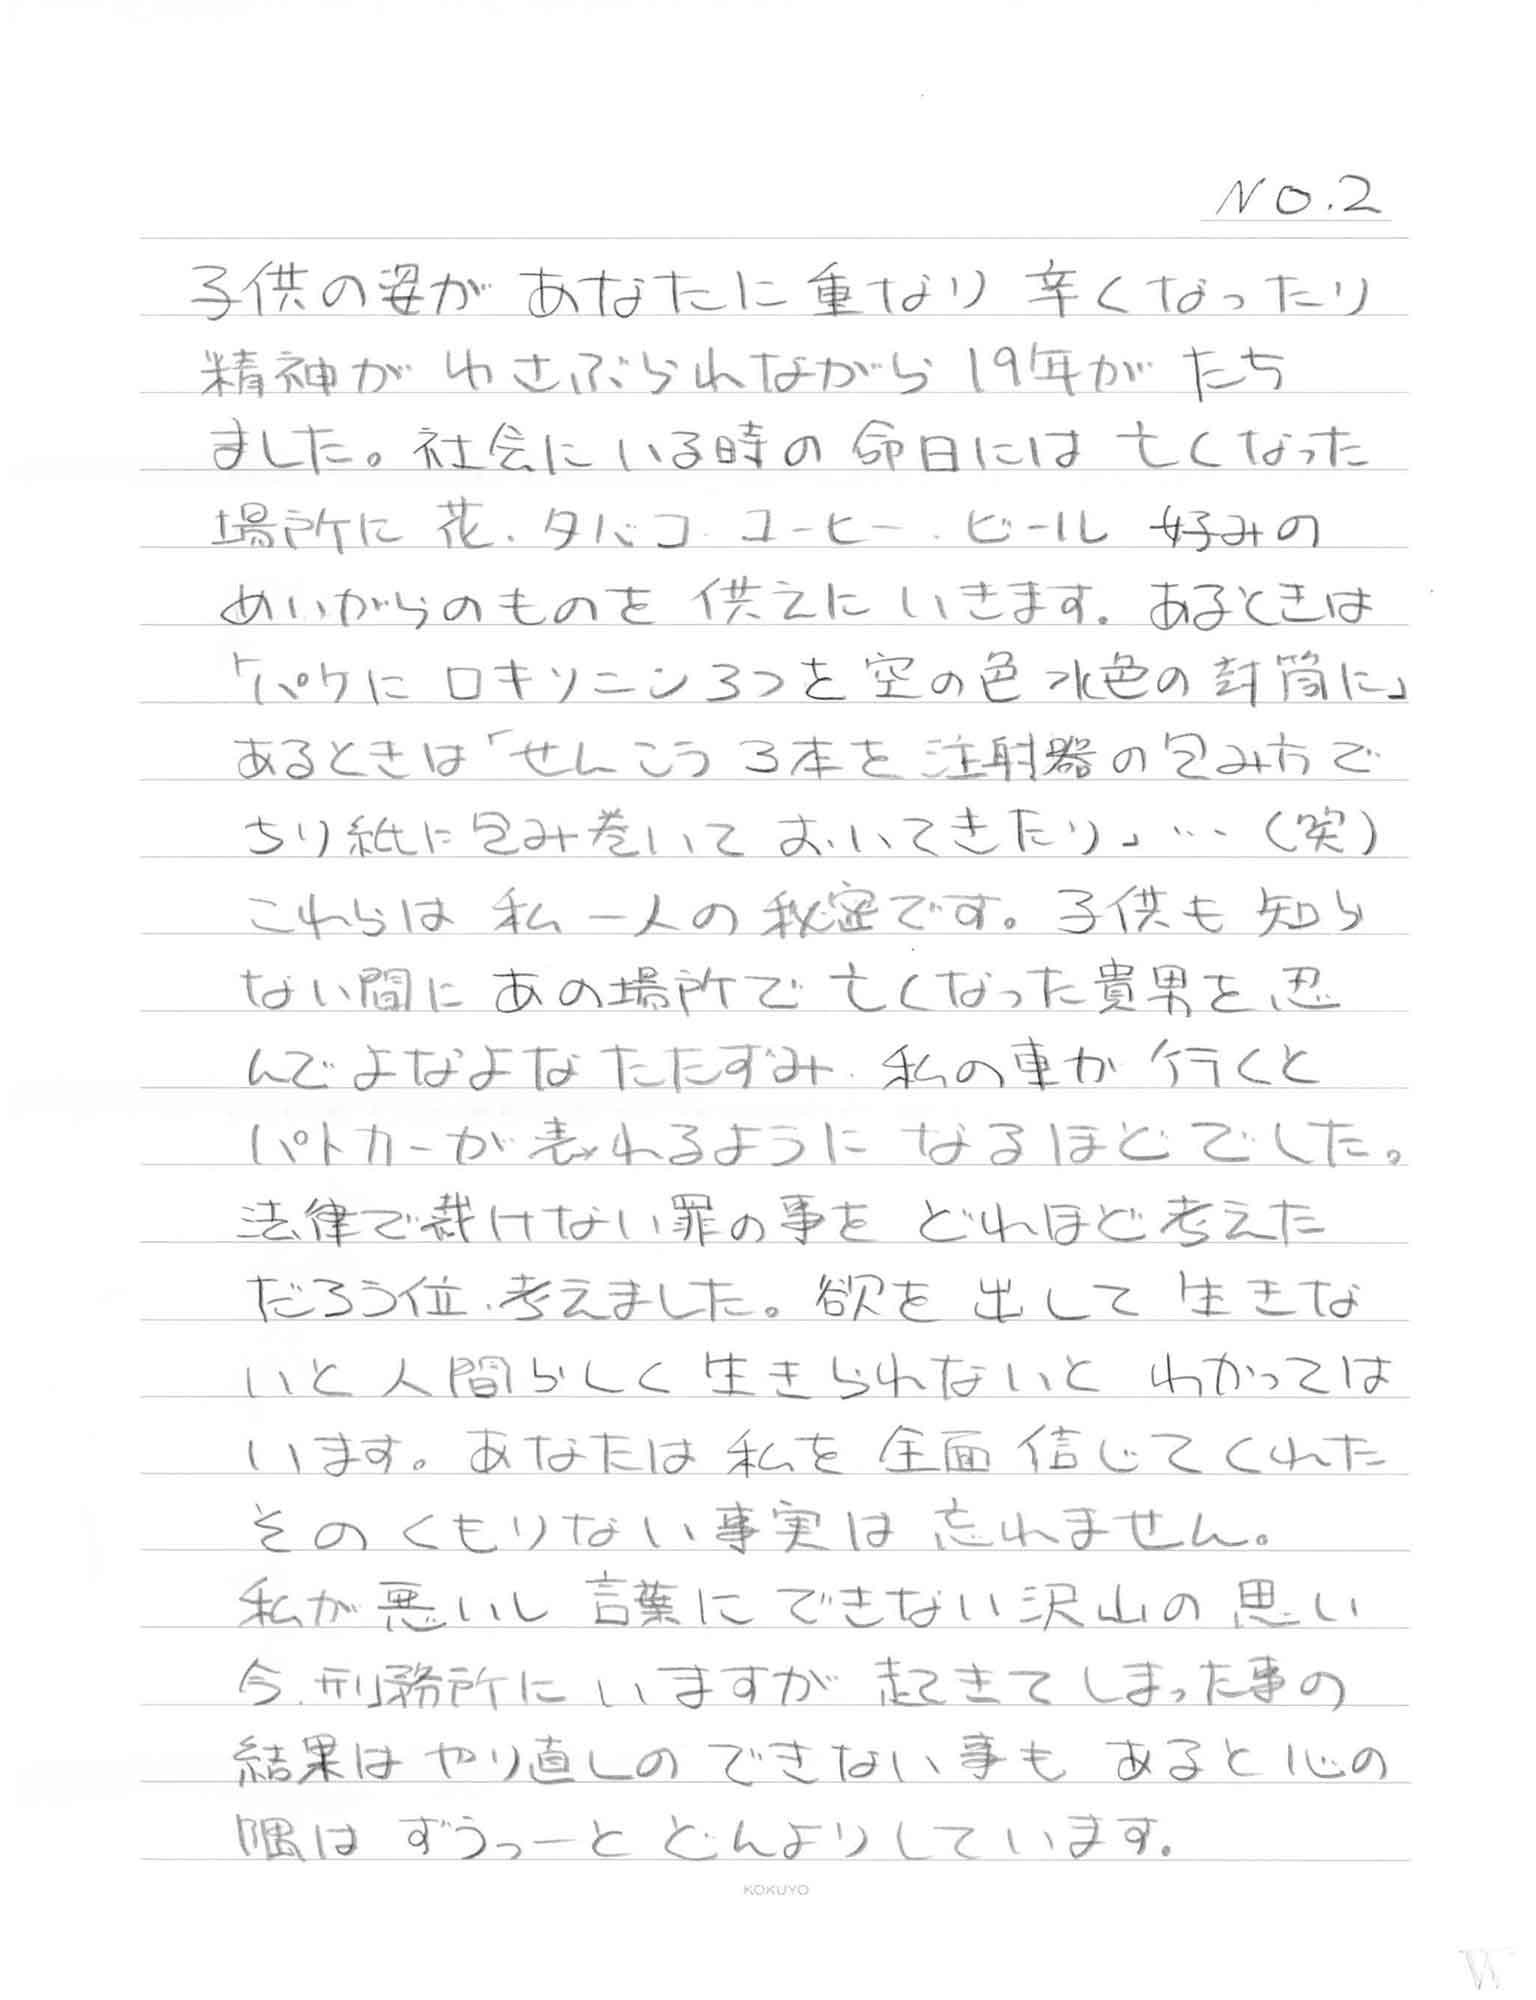 NO.2
子供の姿が あなたに重なり 辛くなったり
精神が ゆさぶられながら 19年が たち
ました。社会に いる時の 命日には 亡くなった
場所に 花、タバコ、コーヒー、ビール 好みの
めいがらのものを 供えに いきます。あるときは
「パケに ロキソニン 3つを 空の色 水色の 封筒に」
あるときは「せんこう 3本を 注射器の包み方で
ちり紙に包み巻いて おいてきたり」…(笑)
これらは 私一人の 秘密です。子供も 知ら
ない間に あの場所で 亡くなった貴男を 忍
んで よなよな たたずみ、私の車が 行くと
パトカーが 表われるように なるほどでした。
法律で裁けない罪の事を どれほど考えた
だろう位、考えました。欲を 出して 生きな
いと 人間らしく 生きられないと わかっては
います。あなたは 私を 全面 信じてくれた
その くもりない 事実は 忘れません。
私が 悪いし 言葉に できない 沢山の 思い
今、刑務所に いますが 起きてしまった事の
結果は やり直しの できない 事も あると 心の
隅は ずうっーと どんよりしています。
KOKUYO
W